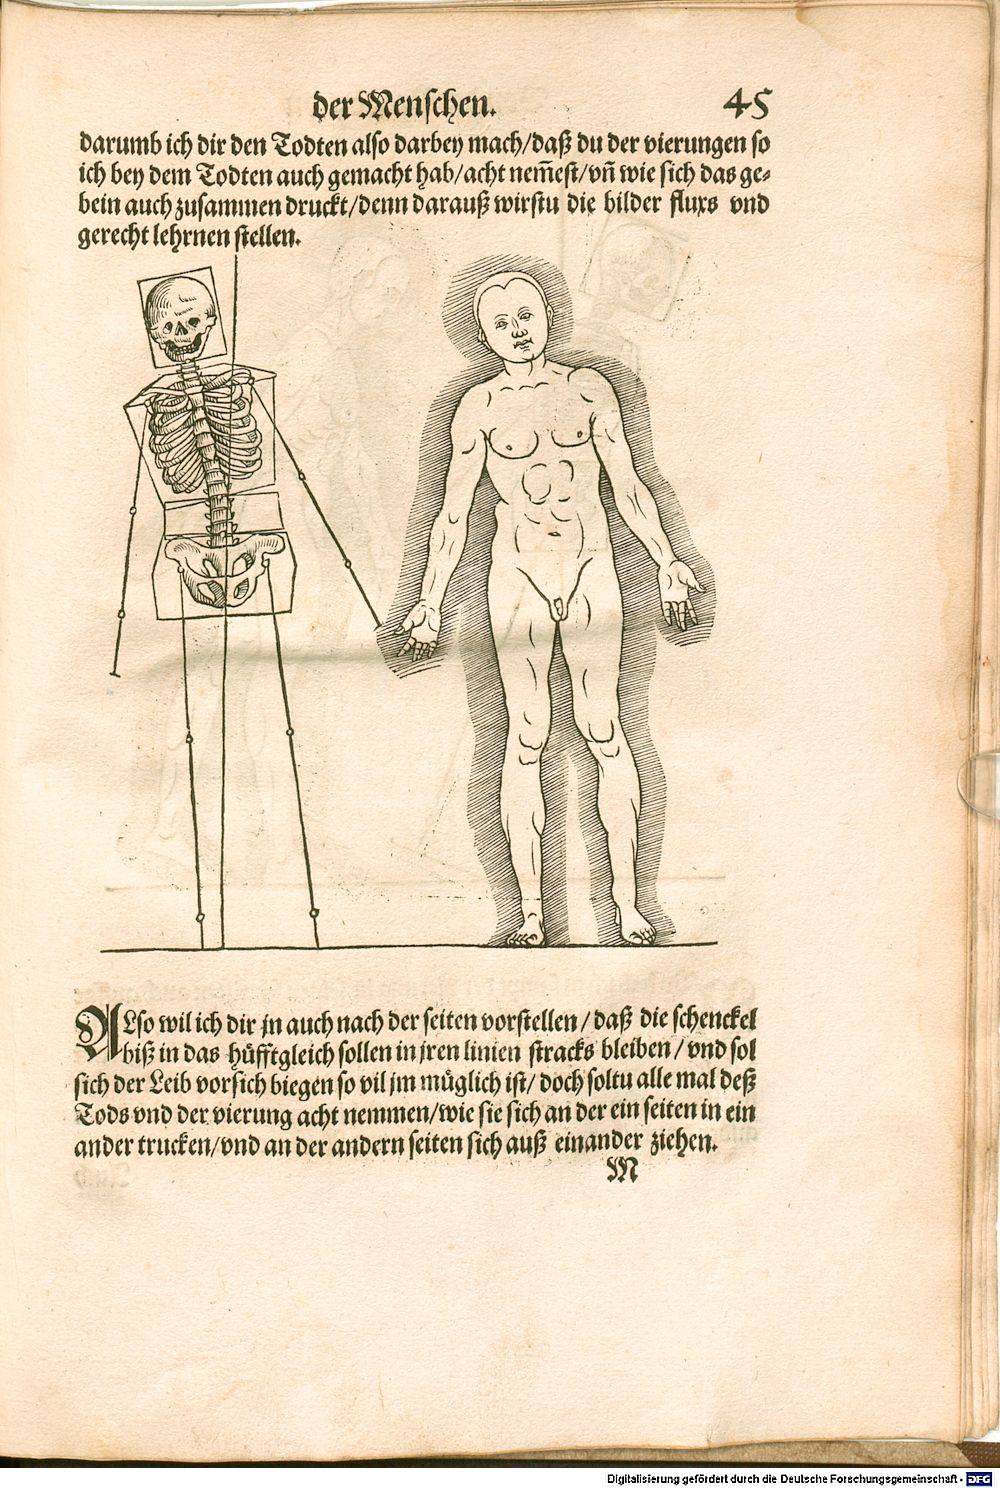 der Menschen. 45
darumb ich dir den Todten also darbey mach/daß du der vierungen so
ich bey dem Todten auch gemacht hab/acht nem̃est/vñ wie sich das ge-
bein auch zusammen druckt/denn darauß wirstu die bilder fluxs vnd
gerecht lehrnen stellen.
ALso wil ich dir jn auch nach der seiten vorstellen/daß die schenckel
biß in das hüfftgleich sollen in jren linien stracks bleiben/vnd sol
sich der Leib vorsich biegen so vil jm müglich ist/doch soltu alle mal deß
Tods vnd der vierung acht nemmen/wie sie sich an der ein seiten in ein
ander trucken/vnd an der andern seiten sich auß einander ziehen.
M
Digitalisierung gefördert durch die Deutsche Forschungsgemeinschaft - DFG